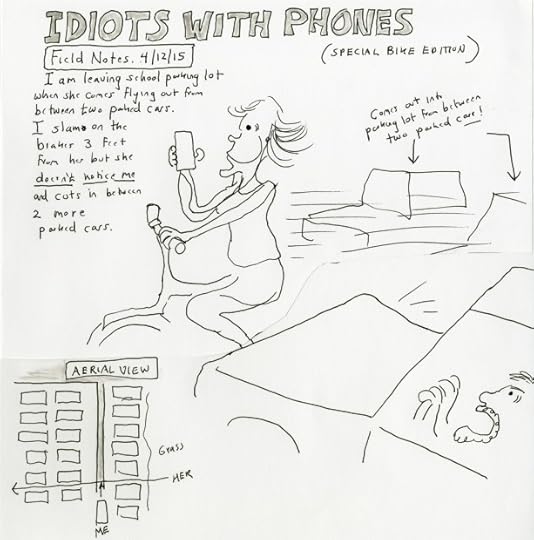 IDIOTS WITH PHONES
(SPECIAL BIKE EDITION)
Field Notes. 4/12/15
I am leaving school parking lot
when she comes flying out from
between two parked cars.
I slam on the
brakes 3 feet
from her but she
doesn't notice me
and cuts in between
2 more
parked cars.
Comes out into
parking lot from between
two parked cars!
AERIAL VIEW
Grass
HER
ME